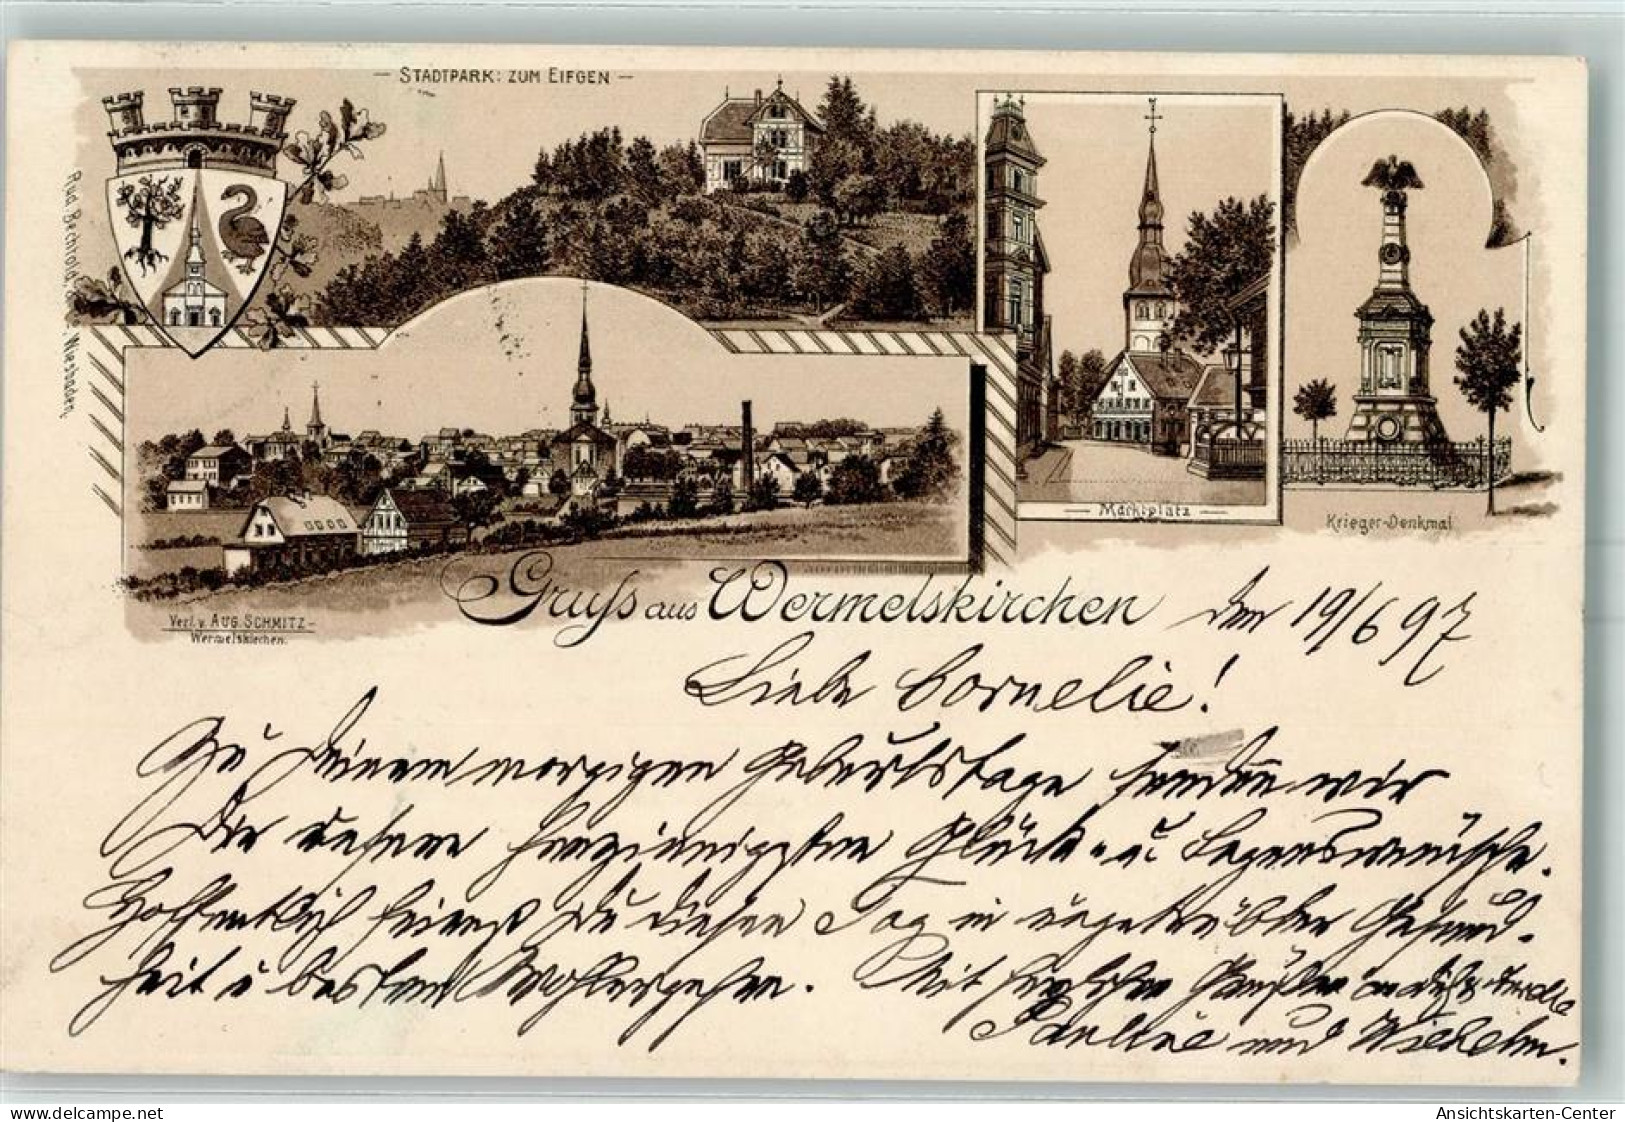 — STADTPARK: ZUM EIFGEN —
Rud. Bechtold Wiesbaden.
— Marktplatz —
Krieger-Denkmal
Verl. v. AUG. SCHMITZ-
Wermelskirchen.
Gruss aus Wermelskirchen den 19/6 97
Liebe Cornelie!
Zu Deinem morgigen Geburtstage senden wir
Dir unsere herzinnigsten Glück- u. Segenswünsche.
Hoffentlich feierst Du diesen Tag in ungetrübter Gesund-
heit u bestem Wohlergehen. Mit herzlichen Grüßen an Dich
Pauline und Wilhelm.
delcampe.net
Ansichtskarten-Center